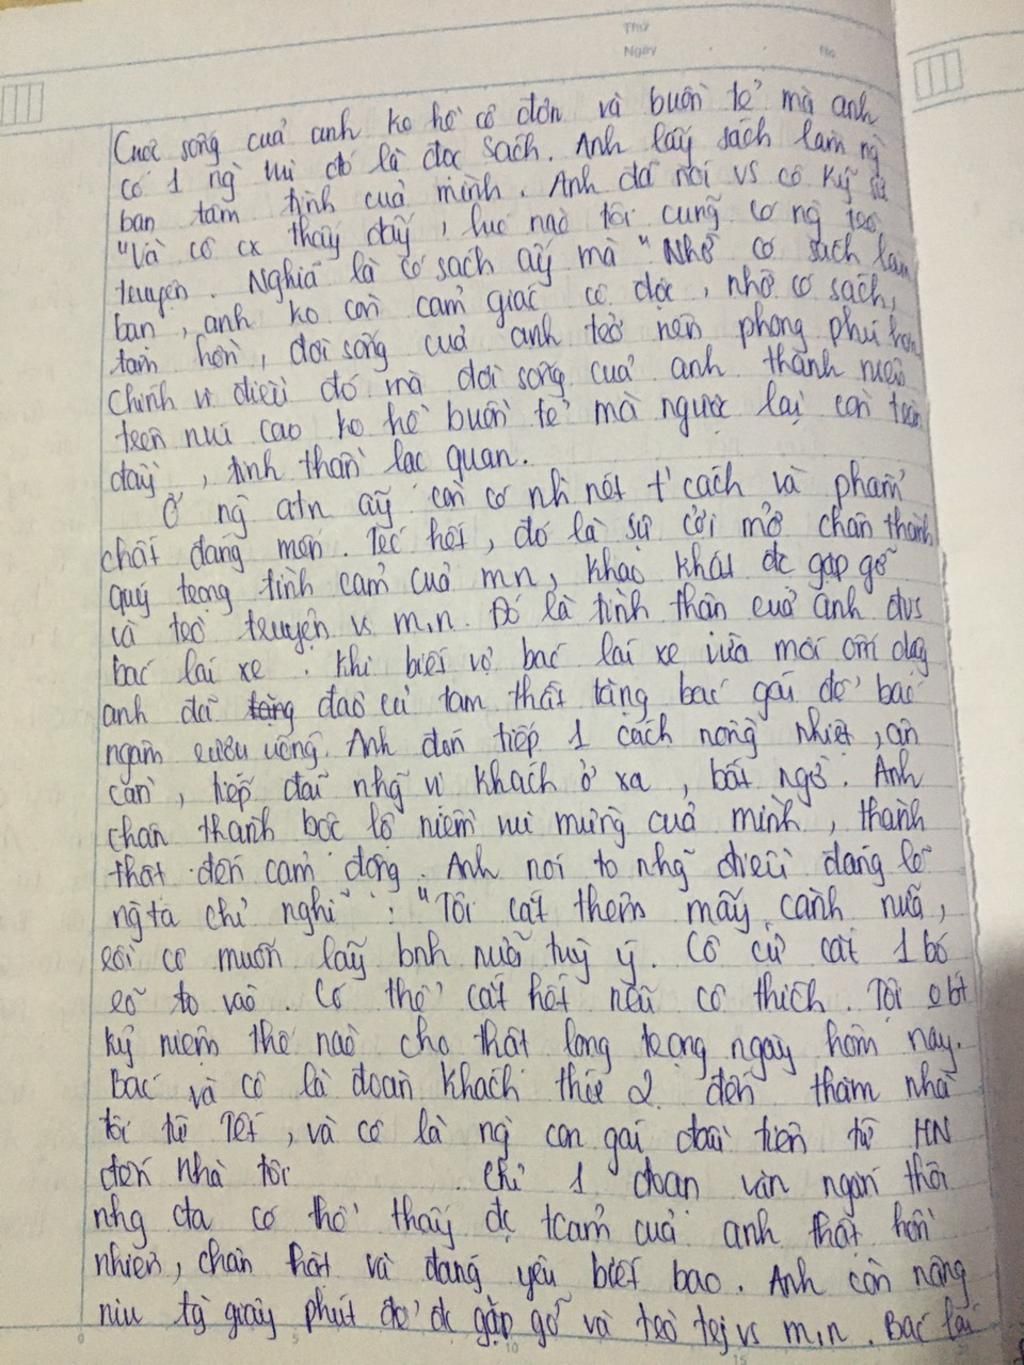 Thứ
Ngày No
Cuộc sống của anh ko hề cô đơn và buồn tẻ mà anh
có 1 ng thú đó là đọc sách. Anh lấy sách làm ng
bạn tâm tình của mình. Anh đã nói vs cô kỹ sư
"Và cô cx thấy đấy, lúc nào tôi cũng có ng trò
truyện. Nghĩa là có sách ấy mà" Nhờ có sách làm
bạn, anh ko còn cảm giác cô độc, nhờ có sách,
tâm hồn, đời sống của anh trở nên phong phú hơn
Chính vì điều đó mà đời sống của anh thanh niên
trên núi cao ko hề buồn tẻ mà ngược lại còn tràn
đầy, tinh thần lạc quan.
Ở ng atn ấy còn có nh nét t'cách và phẩm
chất đáng mến. Trc hết, đó là sự cởi mở chân thành
quý trọng tình cảm của mn, khao khát đc gặp gỡ
và trò truyện vs m.n. Đó là tình thân của anh đvs
bác lái xe. Khi biết vợ bác lái xe vừa mới ốm dậy
anh đã đào củ tam thất tặng bác gái để bác
ngâm rượu uống. Anh đón tiếp 1 cách nồng nhiệt, ân
cần, tiếp đãi nhg vị khách ở xa, bất ngờ. Anh
chân thành bộc lộ niềm vui mừng của mình, thành
thật đến cảm động. Anh nói to nhg điều đáng lẽ
ngta chỉ nghĩ: "Tôi cắt thêm mấy cành nữa,
rồi cô muốn lấy bnh nữa tuỳ ý. Cô cứ cắt 1 bó
rõ to vào. Có thể cắt hết nếu cô thích. Tôi obt
kỷ niệm thế nào cho thật long trọng ngày hôm nay.
Bác và cô là đoàn khách thứ 2 đến thăm nhà
tôi từ Tết, và cô là ng con gái đầu tiên từ HN
đến nhà tôi. Chỉ 1 đoạn văn ngắn thôi
nhg cta có thể thấy đc tcảm của anh thật hồn
nhiên, chân thật và đáng yêu biết bao. Anh còn nâng
niu từg giây phút để đc gặp gỡ và trò vs m.n. Bác lái